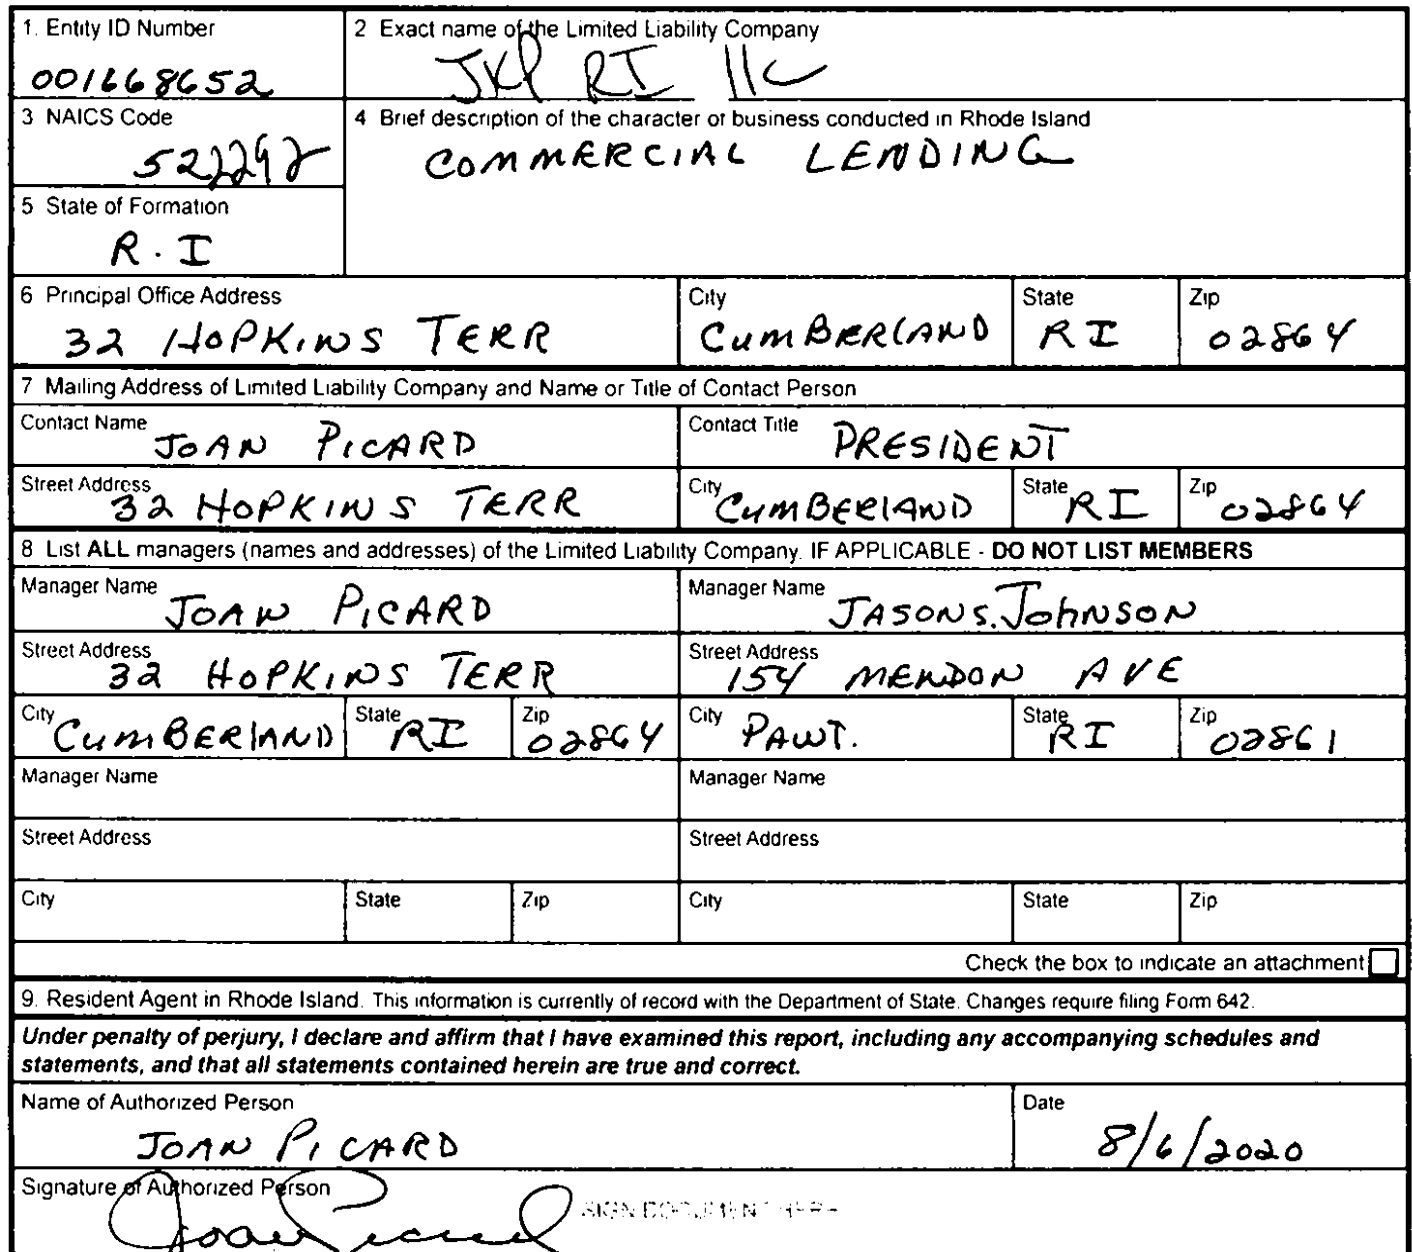 1. Entity ID Number
001668652
2 Exact name of the Limited Liability Company
JKP RI llc
3 NAICS Code
522292
4 Brief description of the character of business conducted in Rhode Island
COMMERCIAL LENDING
5 State of Formation
R.I
6 Principal Office Address
32 HOPKINS TERR
City
CUMBERLAND
State
RI
Zip
02864
7 Mailing Address of Limited Liability Company and Name or Title of Contact Person
Contact Name
JOAN PICARD
Contact Title
PRESIDENT
Street Address
32 HOPKINS TERR
City
CUMBERLAND
State
RI
Zip
02864
8 List ALL managers (names and addresses) of the Limited Liability Company. IF APPLICABLE - DO NOT LIST MEMBERS
Manager Name
JOAN PICARD
Manager Name
JASON S. JOHNSON
Street Address
32 HOPKINS TERR
Street Address
154 MENDON AVE
City
CUMBERLAND
State
RI
Zip
02864
City
PAWT.
State
RI
Zip
02861
Manager Name
Manager Name
Street Address
Street Address
City
State
Zip
City
State
Zip
Check the box to indicate an attachment
9. Resident Agent in Rhode Island. This information is currently of record with the Department of State. Changes require filing Form 642.
Under penalty of perjury, I declare and affirm that I have examined this report, including any accompanying schedules and
statements, and that all statements contained herein are true and correct.
Name of Authorized Person
JOAN PICARD
Date
8/6/2020
Signature of Authorized Person
Joan Picard
SIGN DOCUMENT HERE